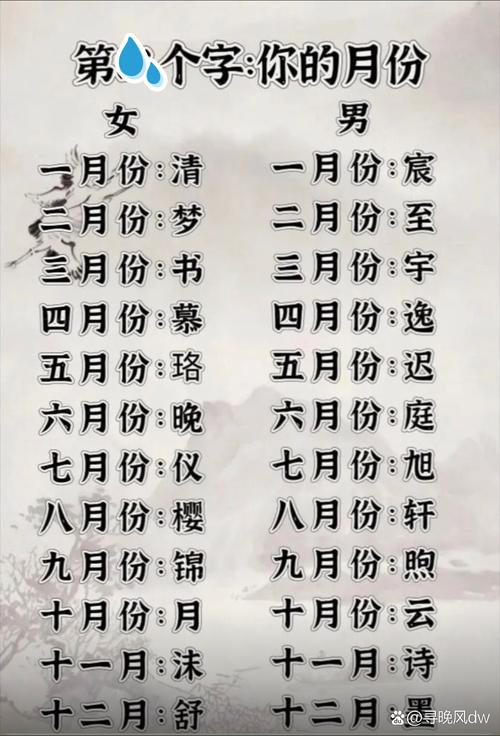 第 个字:你的月份
女 男
一月份:清 一月份:宸
二月份:梦 二月份:至
三月份:书 三月份:宇
四月份:慕 四月份:逸
五月份:珞 五月份:迟
六月份:晚 六月份:庭
七月份:仪 七月份:旭
八月份:樱 八月份:轩
九月份:锦 九月份:煦
十月份:月 十月份:云
十一月:沫 十一月:诗
十二月:舒 十二月:墨
@寻晚风dw